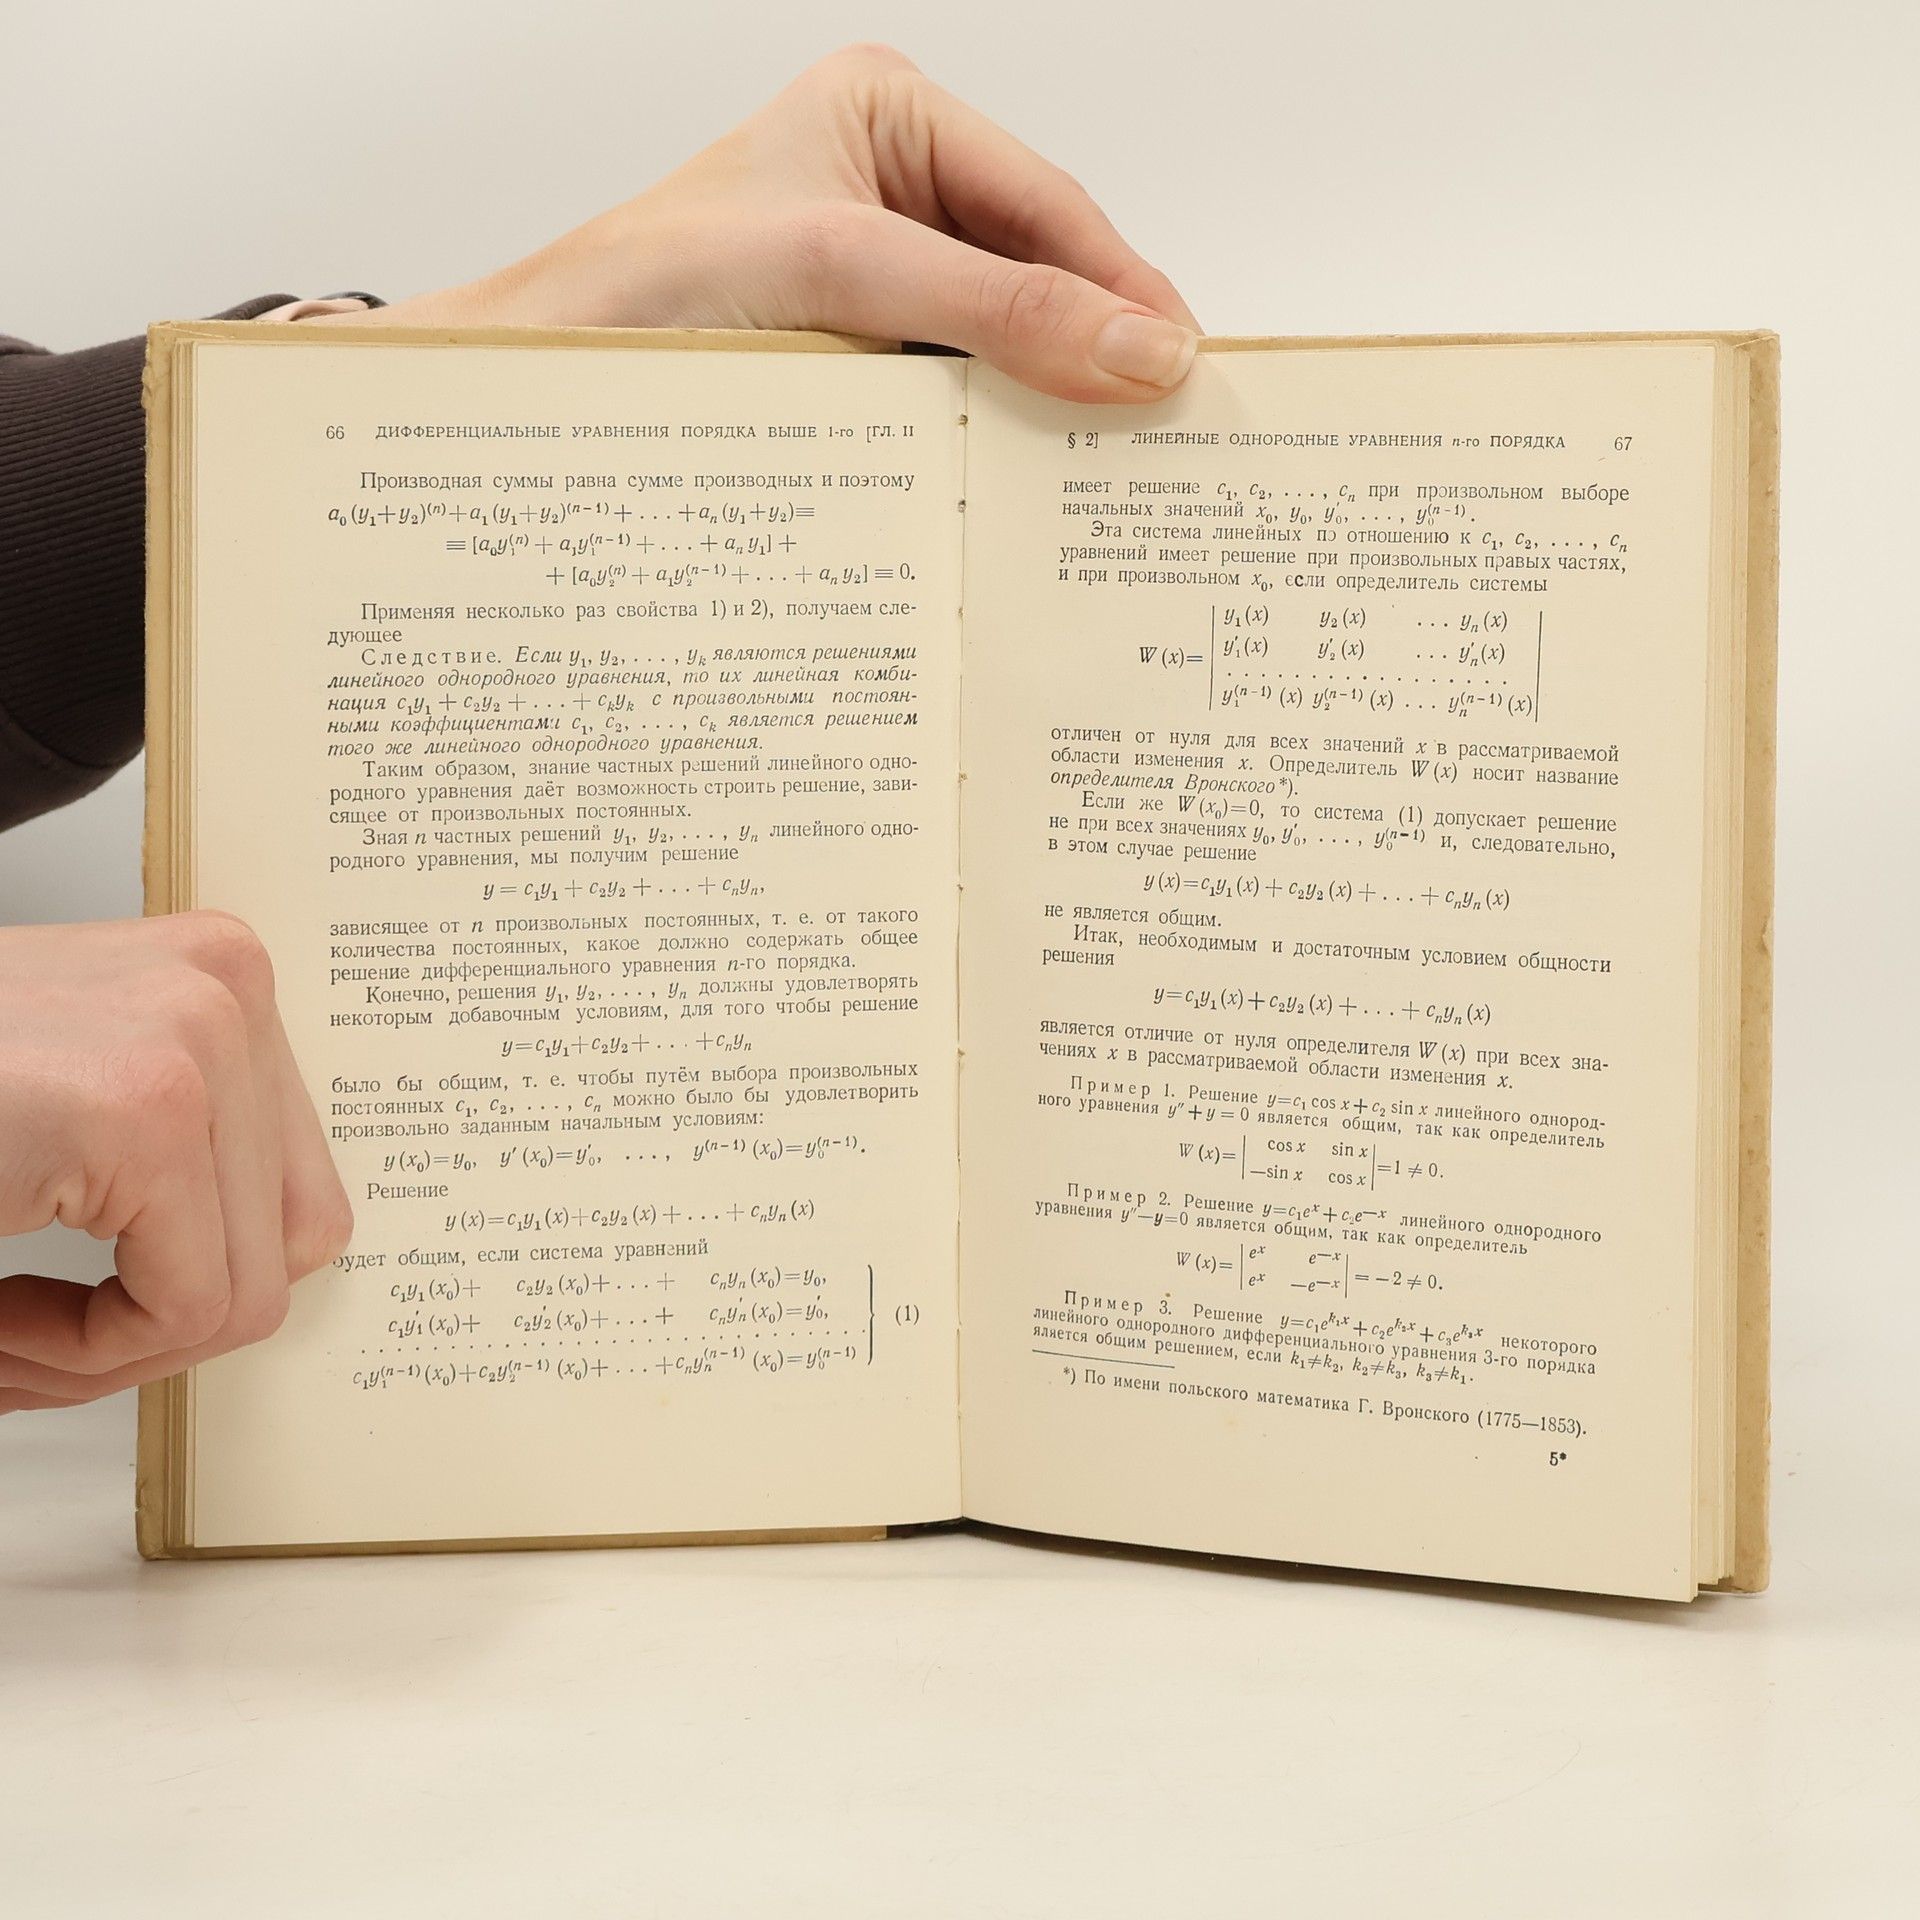 66 ДИФФЕРЕНЦИАЛЬНЫЕ УРАВНЕНИЯ ПОРЯДКА ВЫШЕ 1-го [ГЛ. II
Производная суммы равна сумме производных и поэтому
a₀(y₁+y₂)⁽ⁿ⁾+a₁(y₁+y₂)⁽ⁿ⁻¹⁾+...+aₙ(y₁+y₂)≡
≡[a₀y₁⁽ⁿ⁾+a₁y₁⁽ⁿ⁻¹⁾+...+aₙy₁]+
+[a₀y₂⁽ⁿ⁾+a₁y₂⁽ⁿ⁻¹⁾+...+aₙy₂]≡0.
Применяя несколько раз свойства 1) и 2), получаем сле-
дующее
Следствие. Если y₁, y₂, ..., yₖ являются решениями
линейного однородного уравнения, то их линейная комби-
нация c₁y₁+c₂y₂+...+cₖyₖ с произвольными постоян-
ными коэффициентами c₁, c₂, ..., cₖ является решением
того же линейного однородного уравнения.
Таким образом, знание частных решений линейного одно-
родного уравнения даёт возможность строить решение, зави-
сящее от произвольных постоянных.
Зная n частных решений y₁, y₂, ..., yₙ линейного одно-
родного уравнения, мы получим решение
y=c₁y₁+c₂y₂+...+cₙyₙ,
зависящее от n произвольных постоянных, т. е. от такого
количества постоянных, какое должно содержать общее
решение дифференциального уравнения n-го порядка.
Конечно, решения y₁, y₂, ..., yₙ должны удовлетворять
некоторым добавочным условиям, для того чтобы решение
y=c₁y₁+c₂y₂+...+cₙyₙ
было бы общим, т. е. чтобы путём выбора произвольных
постоянных c₁, c₂, ..., cₙ можно было бы удовлетворить
произвольно заданным начальным условиям:
y(x₀)=y₀, y′(x₀)=y₀′, ..., y⁽ⁿ⁻¹⁾(x₀)=y₀⁽ⁿ⁻¹⁾.
Решение
y(x)=c₁y₁(x)+c₂y₂(x)+...+cₙyₙ(x)
будет общим, если система уравнений
c₁y₁(x₀)+ c₂y₂(x₀)+...+ cₙyₙ(x₀)=y₀,
c₁y₁′(x₀)+ c₂y₂′(x₀)+...+ cₙyₙ′(x₀)=y₀′,
. . . . . . . . . . . . . . . . . . . . (1)
c₁y₁⁽ⁿ⁻¹⁾(x₀)+c₂y₂⁽ⁿ⁻¹⁾(x₀)+...+cₙyₙ⁽ⁿ⁻¹⁾(x₀)=y₀⁽ⁿ⁻¹⁾
§ 2] ЛИНЕЙНЫЕ ОДНОРОДНЫЕ УРАВНЕНИЯ n-го ПОРЯДКА 67
имеет решение c₁, c₂, ..., cₙ при произвольном выборе
начальных значений x₀, y₀, y₀′, ..., y₀⁽ⁿ⁻¹⁾.
Эта система линейных по отношению к c₁, c₂, ..., cₙ
уравнений имеет решение при произвольных правых частях,
и при произвольном x₀, если определитель системы
| y₁(x) y₂(x) ... yₙ(x) |
W(x)= | y₁′(x) y₂′(x) ... yₙ′(x) |
. . . . . . . . . . . . . . .
| y₁⁽ⁿ⁻¹⁾(x) y₂⁽ⁿ⁻¹⁾(x) ... yₙ⁽ⁿ⁻¹⁾(x) |
отличен от нуля для всех значений x в рассматриваемой
области изменения x. Определитель W(x) носит название
определителя Вронского*).
Если же W(x₀)=0, то система (1) допускает решение
не при всех значениях y₀, y₀′, ..., y₀⁽ⁿ⁻¹⁾ и, следовательно,
в этом случае решение
y(x)=c₁y₁(x)+c₂y₂(x)+...+cₙyₙ(x)
не является общим.
Итак, необходимым и достаточным условием общности
решения
y=c₁y₁(x)+c₂y₂(x)+...+cₙyₙ(x)
является отличие от нуля определителя W(x) при всех зна-
чениях x в рассматриваемой области изменения x.
Пример 1. Решение y=c₁ cos x+c₂ sin x линейного однород-
ного уравнения y″+y=0 является общим, так как определитель
W(x)= | cos x sin x |
| —sin x cos x | =1≠0.
Пример 2. Решение y=c₁eˣ+c₂e⁻ˣ линейного однородного
уравнения y″—y=0 является общим, так как определитель
W(x)= | eˣ e⁻ˣ |
| eˣ —e⁻ˣ | =—2≠0.
Пример 3. Решение y=c₁e^{k₁x}+c₂e^{k₂x}+c₃e^{k₃x} некоторого
линейного однородного дифференциального уравнения 3-го порядка
является общим решением, если k₁≠k₂, k₂≠k₃, k₃≠k₁.
*) По имени польского математика Г. Вронского (1775—1853).
5*